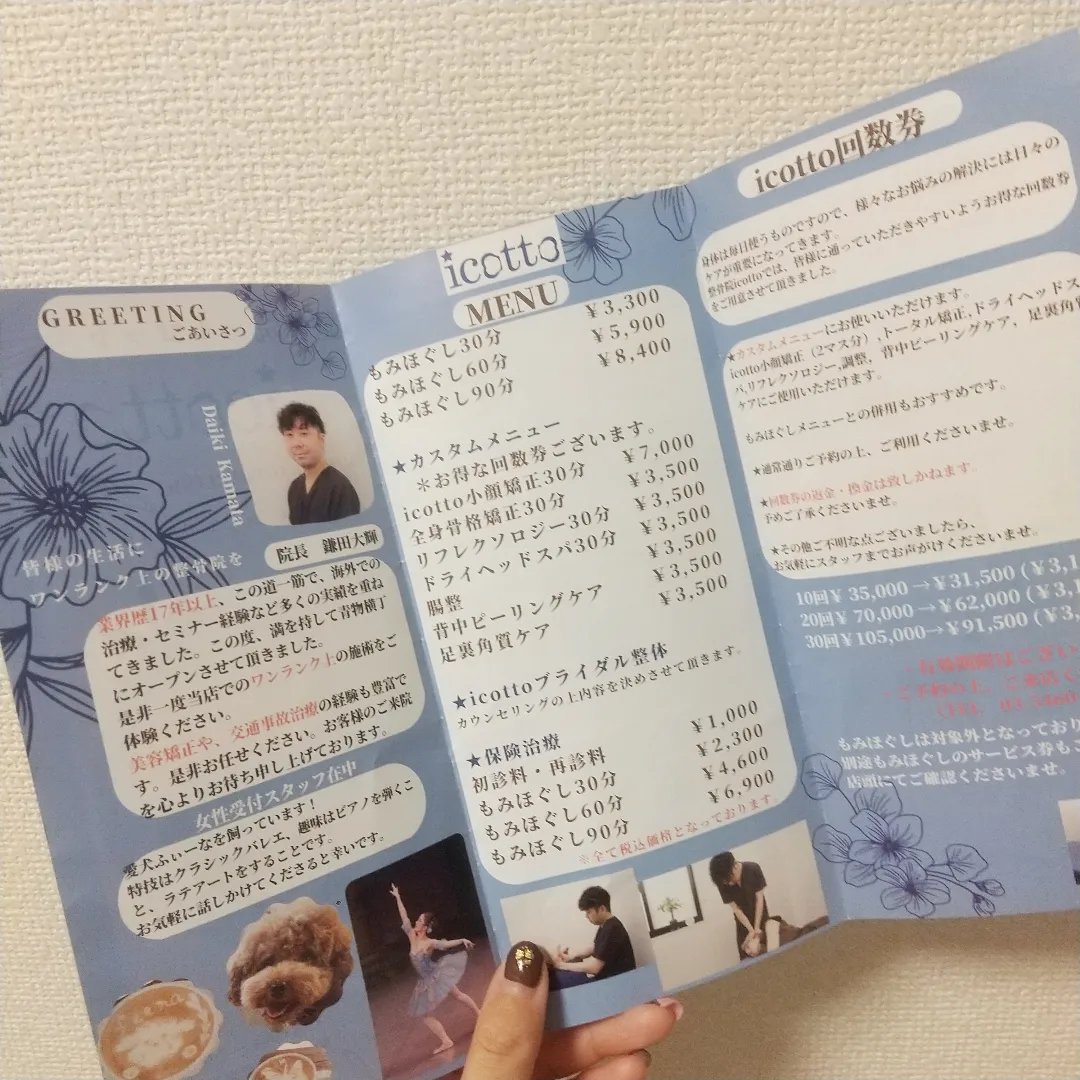 GREETING
ごあいさつ
Daiki Kamata
皆様の生活に
ワンランク上の整骨院を
院長 鎌田大輝
業界歴17年以上、この道一筋で、海外での
治療・セミナー経験など多くの実績を重ね
てきました。この度、満を持して青物横丁
にオープンさせて頂きました。
是非一度当店でのワンランク上の施術をご
体験ください。
美容矯正や、交通事故治療の経験も豊富で
す。是非お任せください。お客様のご来院
を心よりお待ち申し上げております。
女性受付スタッフ在中
愛犬ふぃーなを飼っています!
特技はクラシックバレエ、趣味はピアノを弾くこ
と、ラテアートをすることです。
お気軽に話しかけてくださると幸いです。
icotto
MENU
もみほぐし30分 ¥3,300
もみほぐし60分 ¥5,900
もみほぐし90分 ¥8,400
★カスタムメニュー
＊お得な回数券ございます。
icotto小顔矯正30分 ¥7,000
全身骨格矯正30分 ¥3,500
リフレクソロジー30分 ¥3,500
ドライヘッドスパ30分 ¥3,500
腸整 ¥3,500
背中ピーリングケア ¥3,500
足裏角質ケア ¥3,500
★icottoブライダル整体
カウンセリングの上内容を決めさせて頂きます。
★保険治療
初診料・再診料 ¥1,000
もみほぐし30分 ¥2,300
もみほぐし60分 ¥4,600
もみほぐし90分 ¥6,900
※全て税込価格となっております。
icotto回数券
身体は毎日使うものですので、様々なお悩みの解決には日々の
ケアが重要になってきます。
整骨院icottoでは、皆様に通っていただきやすいようお得な回数券
をご用意させて頂きました。
★カスタムメニューにお使いいただけます。
icotto小顔矯正（2マス分）,トータル矯正,ドライヘッドス
パ,リフレクソロジー,調整，背中ピーリングケア，足裏角質
ケアにご使用いただけます。
もみほぐしメニューとの併用もおすすめです。
★通常通りご予約の上、ご利用くださいませ。
★回数券の返金・換金は致しかねます。
予めご了承くださいませ。
★その他ご不明な点ございましたら、
お気軽にスタッフまでお声がけくださいませ。
10回¥ 35,000→¥31,500 (¥3,1
20回¥ 70,000→¥62,000 (¥3,1
30回¥105,000→¥91,500 (¥3,
もみほぐしは対象外となってお
別途もみほぐしのサービス券もご
店頭にてご確認くださいませ。